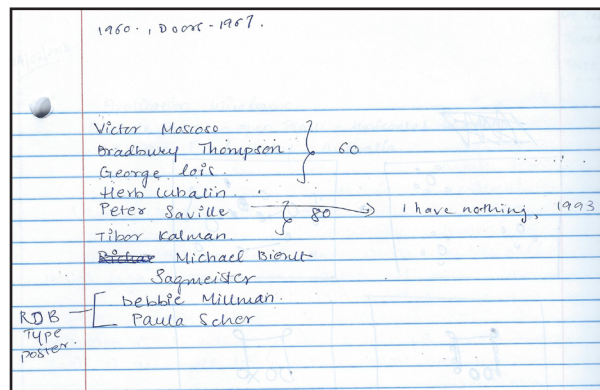 1960., Doors - 1967.
Victor Moscoso
Bradbury Thompson } 60
George lois.
Herb Lubalin.
Peter Saville } 80 → I have nothing, 1993
Tibor Kalman.
Michael Bierult
Sagmeister
Debbie Millman.
RDB Type poster. [ Paula Scher